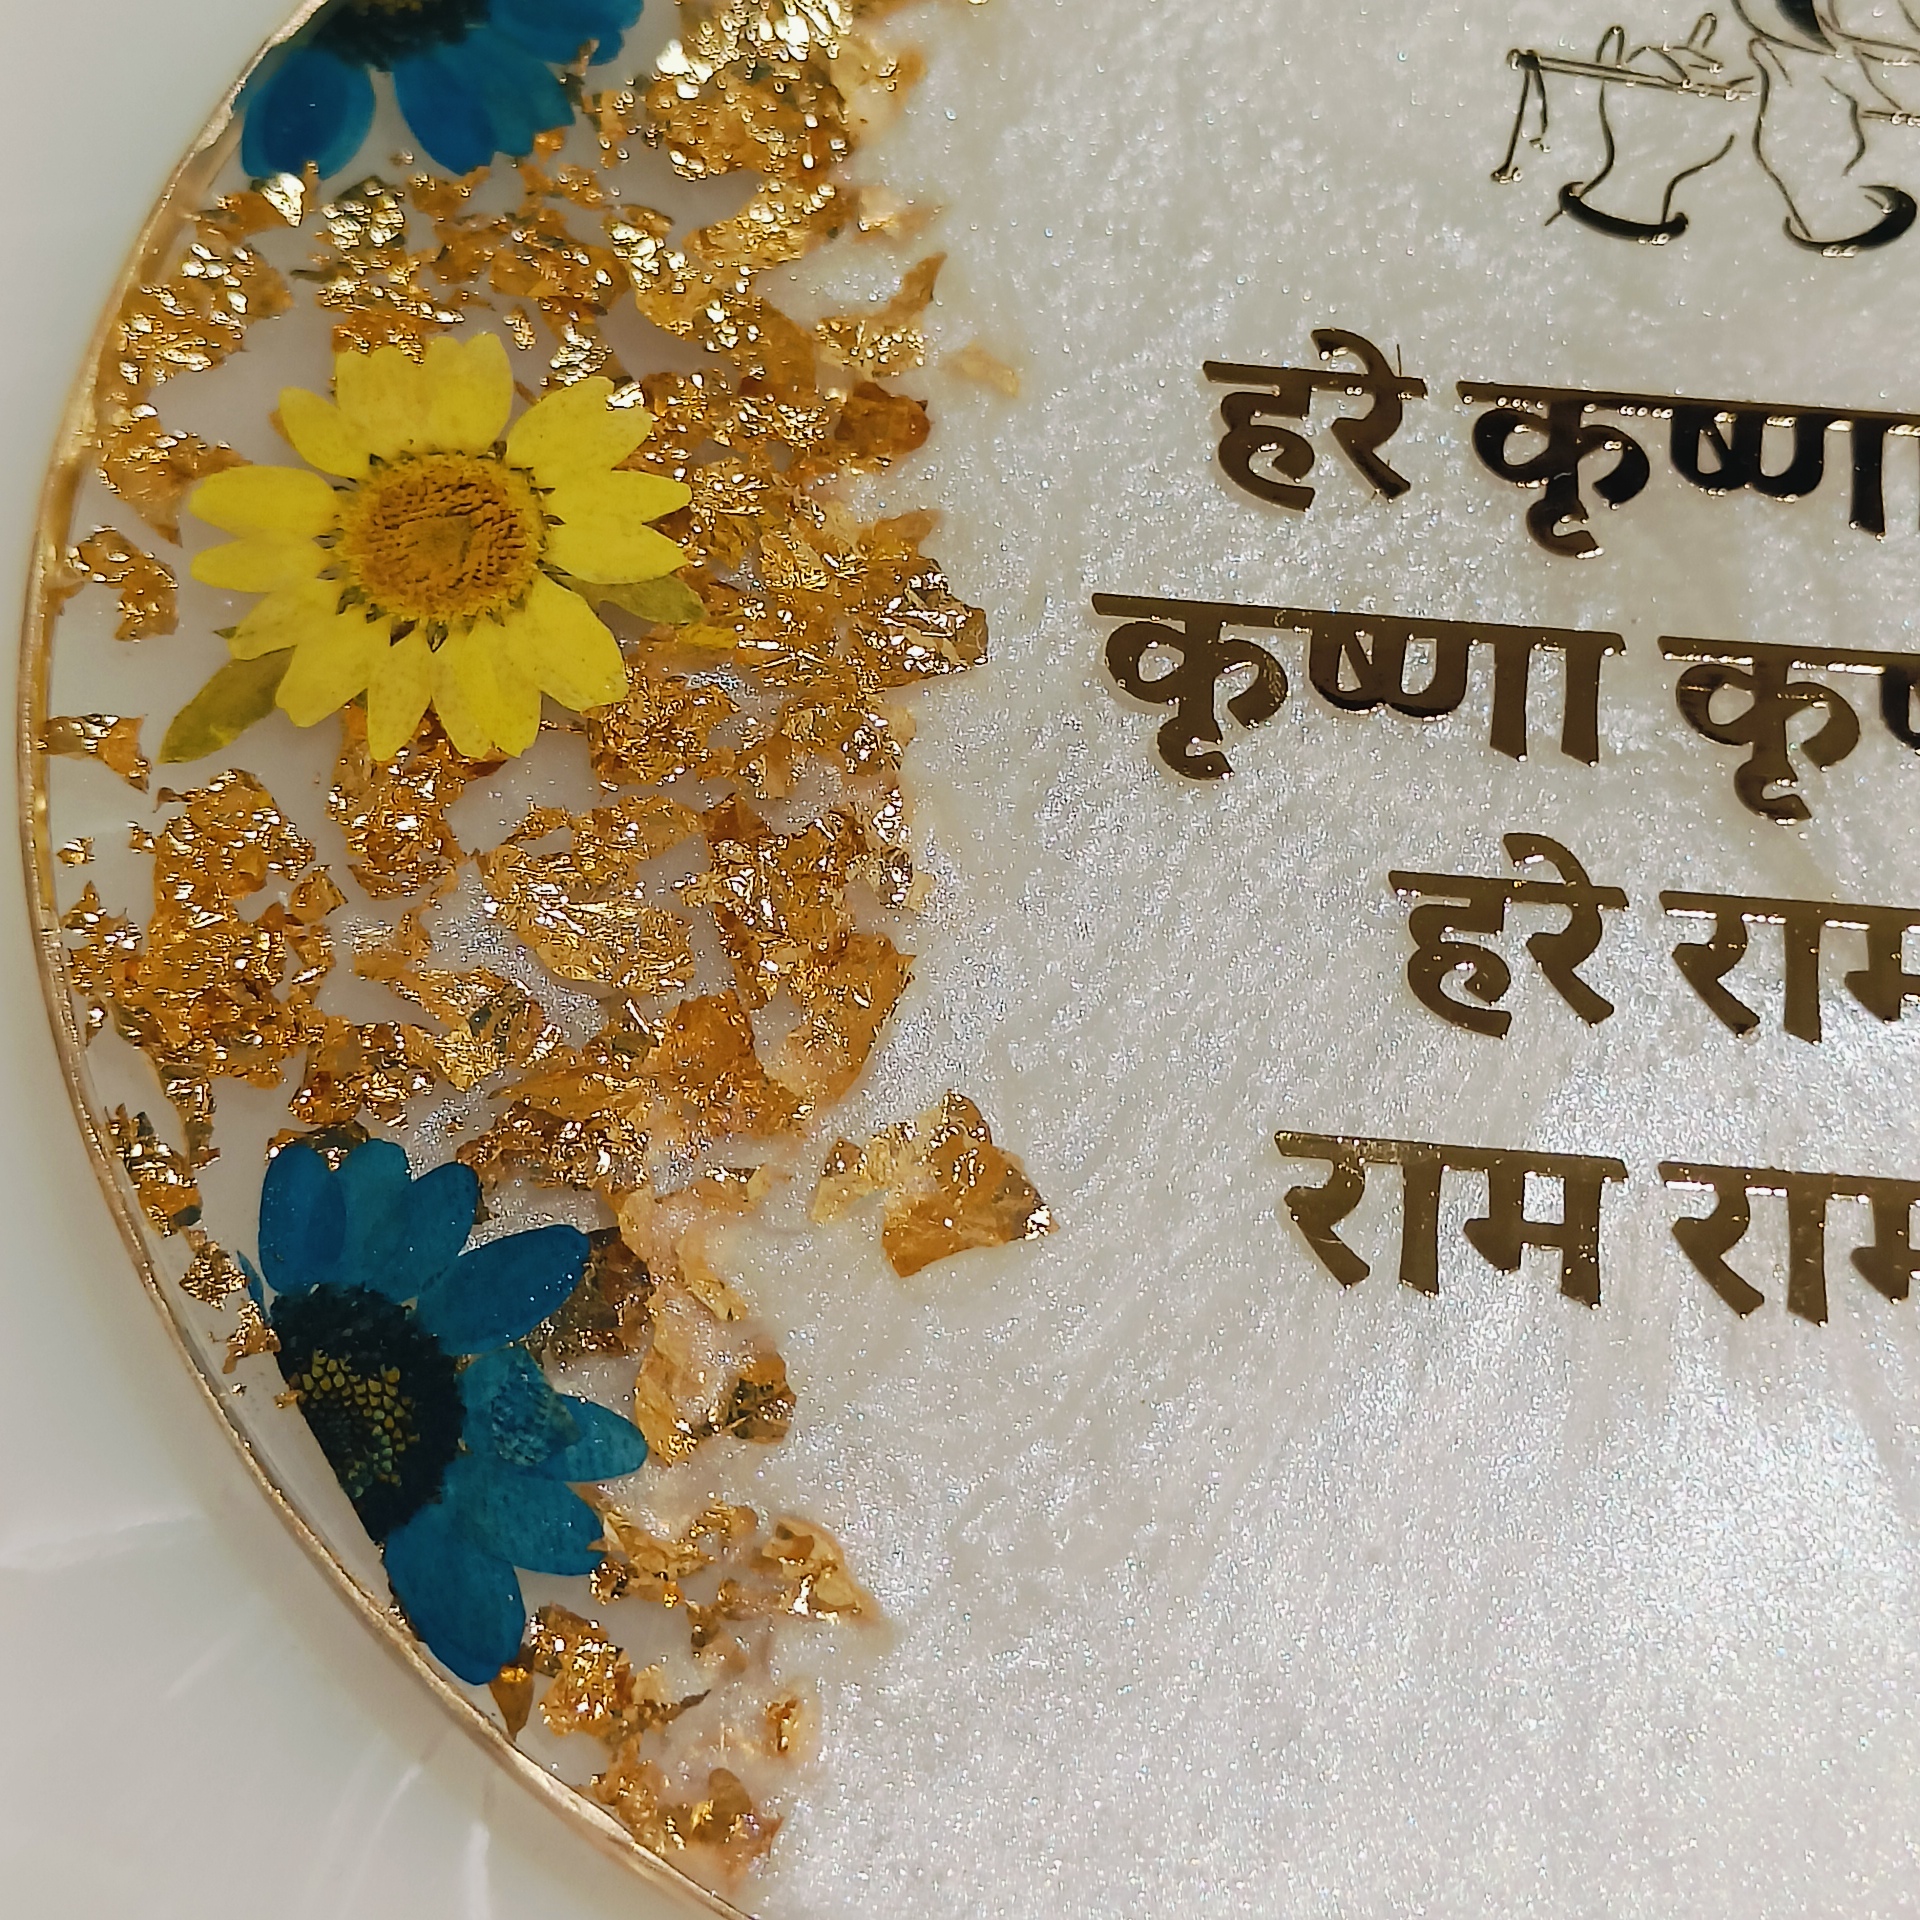 हरे कृष्णा
कृष्णा
हरे राम
राम राम